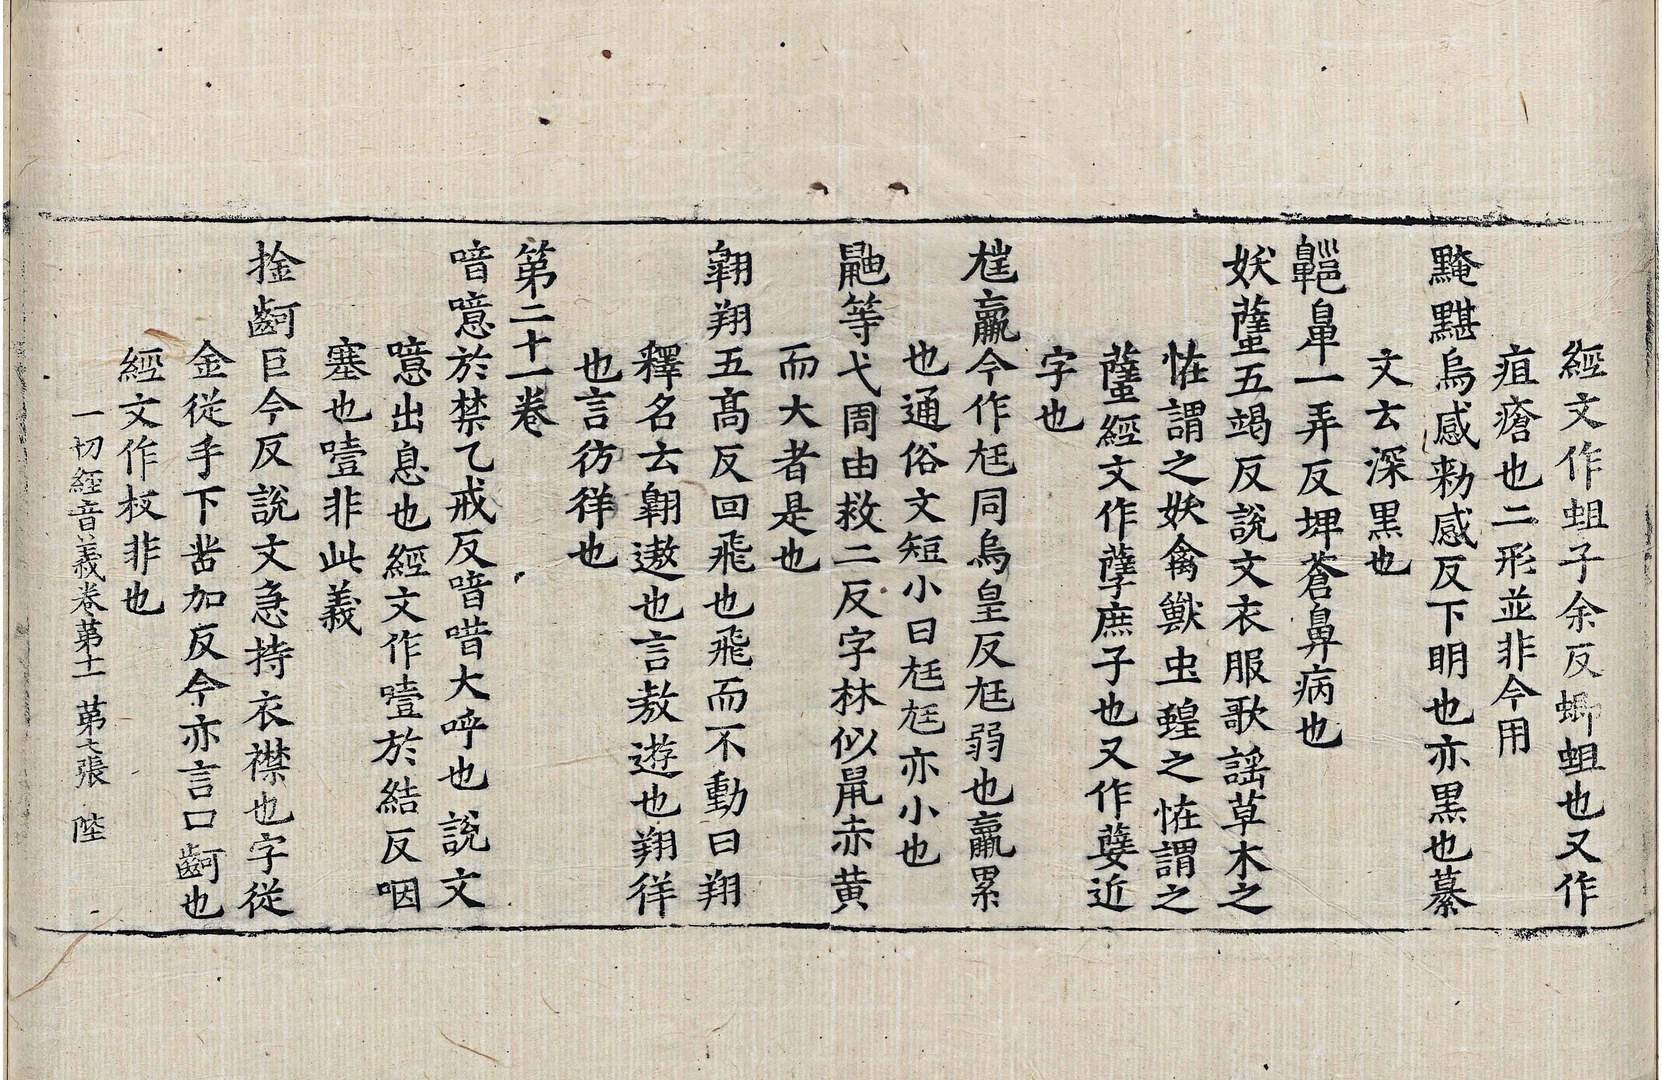 經文作蛆子余反蝍蛆也又作
疽瘡也二形並非今用
黤黮烏感勑感反下明也亦黑也蒼
文云深黑也
齆鼻一弄反埤蒼鼻病也
妖𧒂五竭反說文衣服歌謡草木之
恠謂之妖禽獸虫蝗之恠謂之
𧒂經文作孽庶子也又作孼近
字也
尪羸今作尫同烏皇反尫弱也羸累
也通俗文短小曰尫尫亦小也
鼬等弋周由救二反字林似鼠赤黄
而大者是也
翺翔五髙反回飛也飛而不動曰翔
釋名云翺遨也言敖遊也翔徉
也言彷徉也
第二十一卷
喑噫於禁乙戒反喑唶大呼也說文
噫出息也經文作噎於結反咽
塞也噎非此義
捦齖巨今反說文急持衣襟也字從
金從手下齒加反今亦言口齖也
經文作杈非也
一切經音義卷第十一 第七張 陛